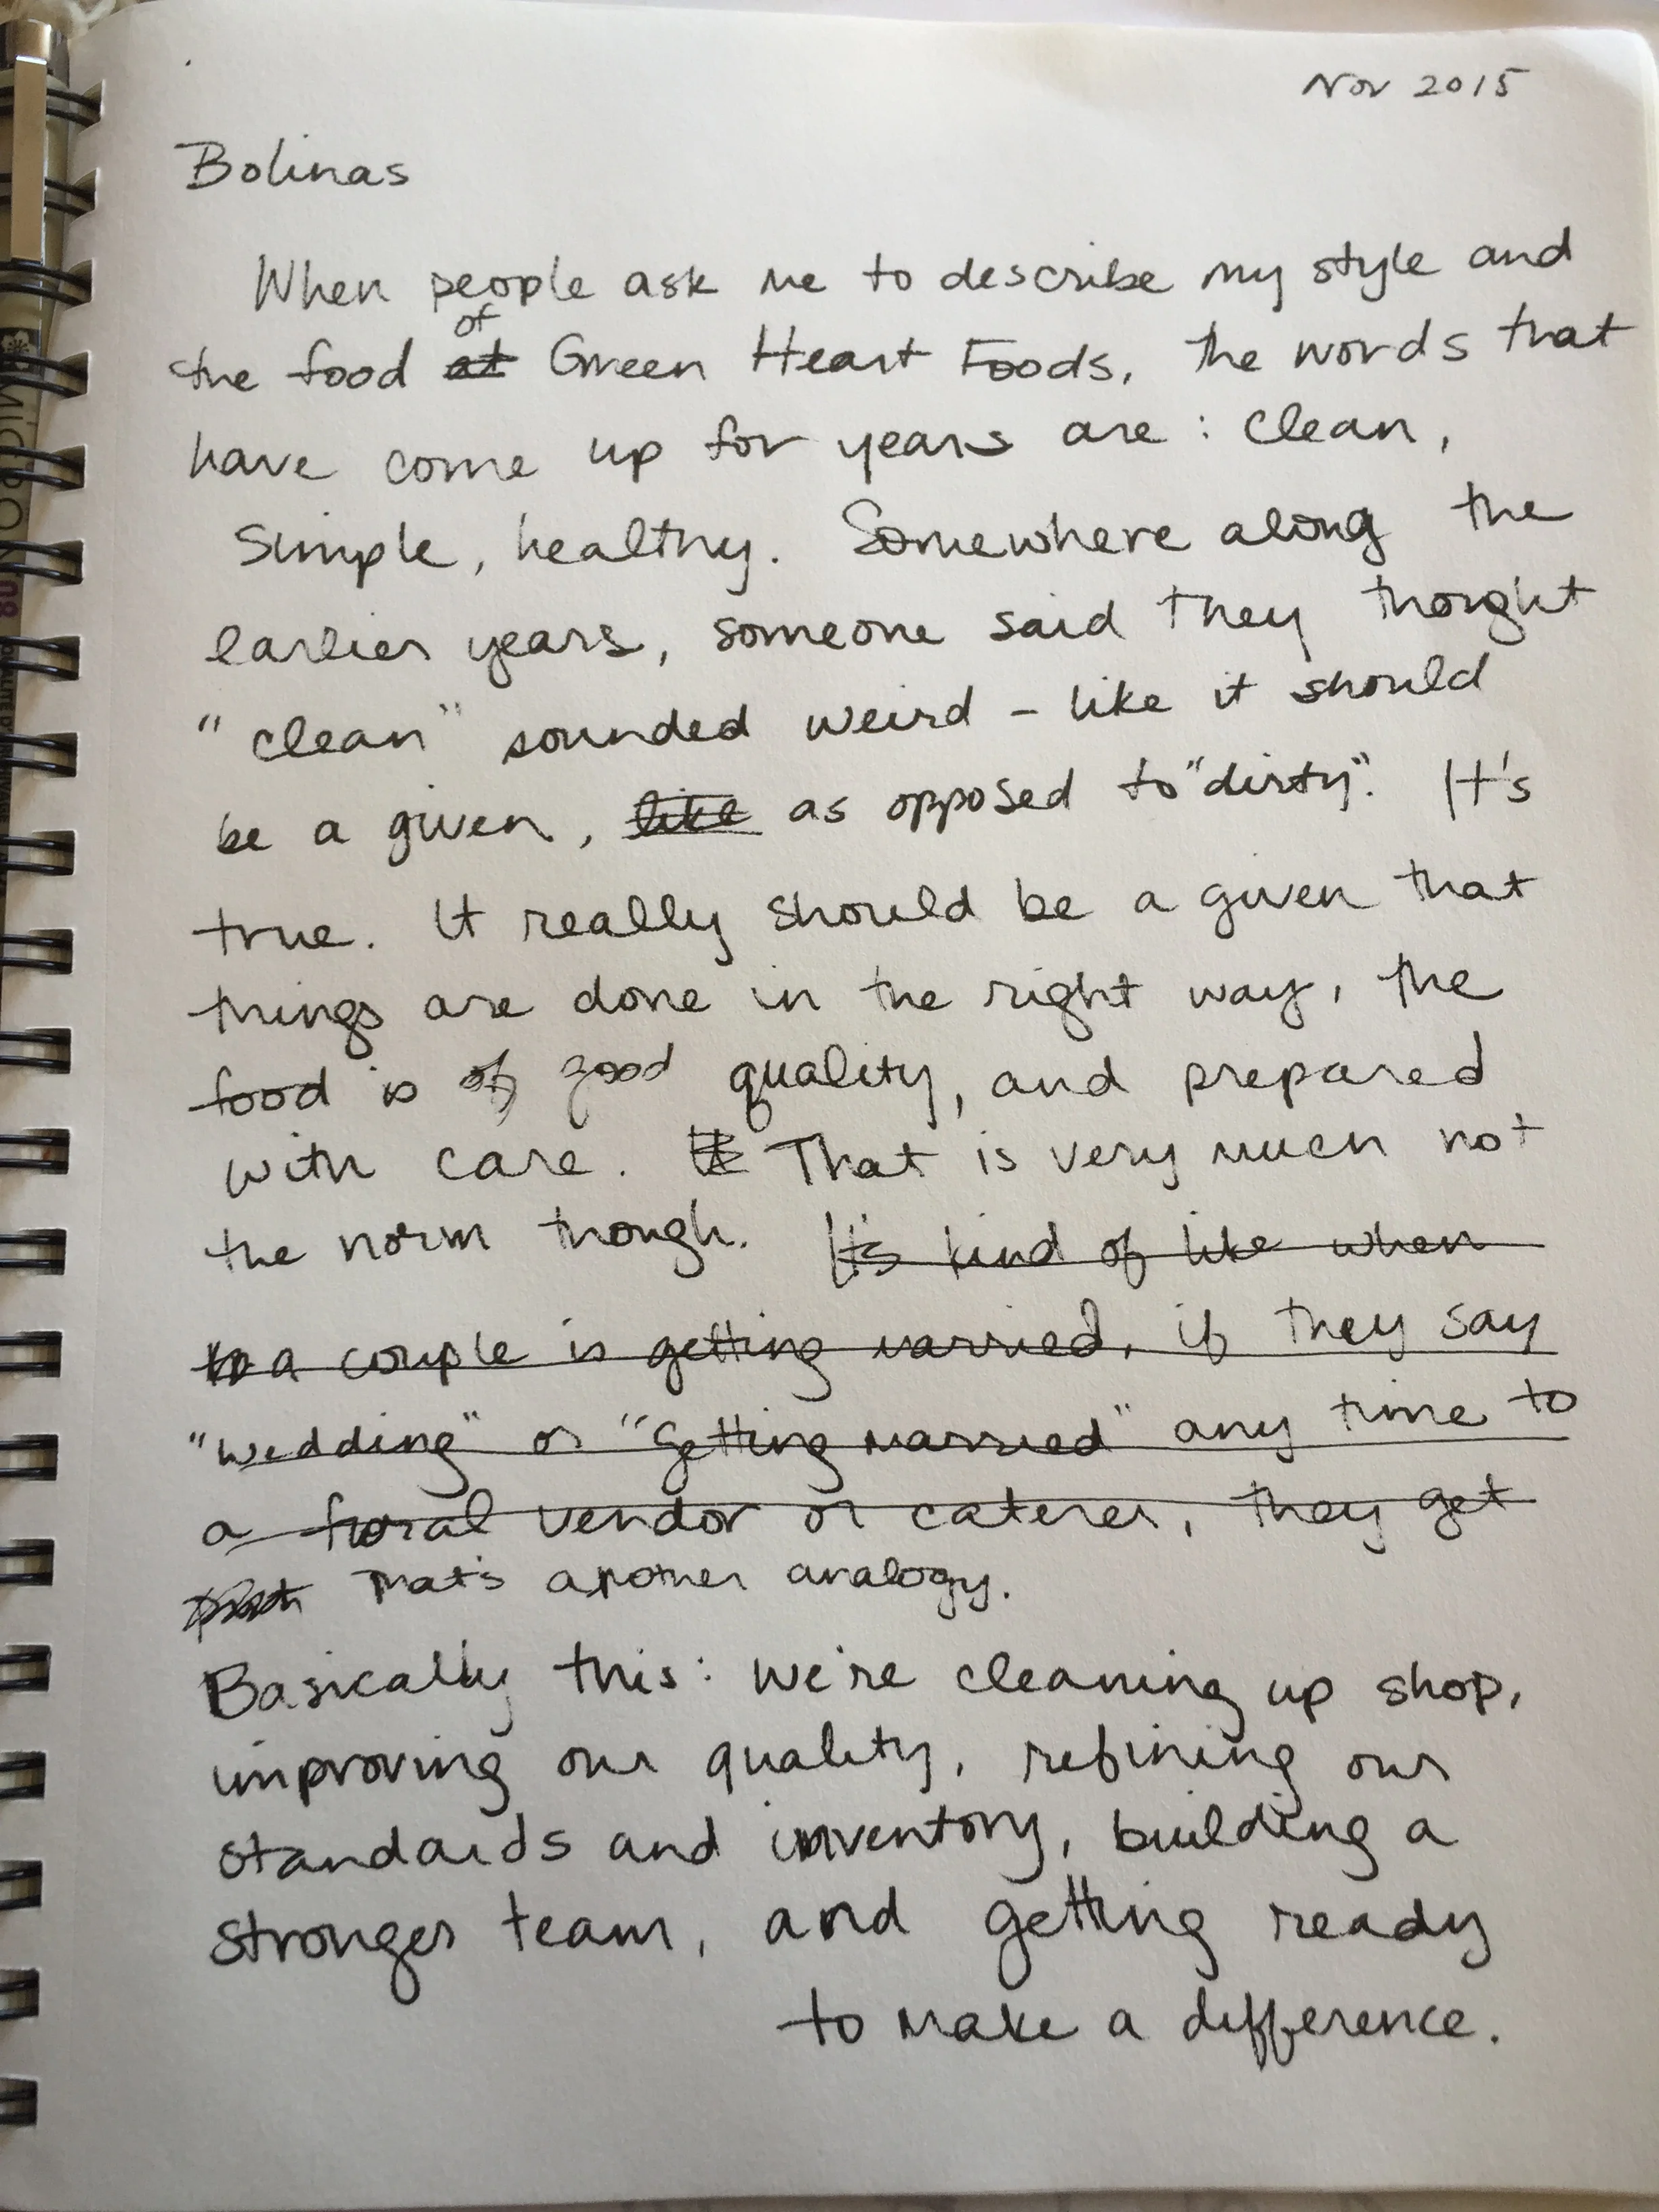 Nov 2015
Bolinas
When people ask me to describe my style and
of
the food at Green Heart Foods, the words that
have come up for years are: clean,
simple, healthy. Somewhere along the
earlier years, someone said they thought
"clean" sounded weird - like it should
be a given, like as opposed to "dirty". It's
true. It really should be a given that
things are done in the right way, the
food is of good quality, and prepared
with care. It That is very much not
the norm though. It's kind of like when
a couple is getting married, if they say
"wedding" or "getting married" any time to
a floral vendor or caterer, they get
That's another analogy.
Basically this: we're cleaning up shop,
improving our quality, refining our
standards and inventory, building a
stronger team, and getting ready
to make a difference.